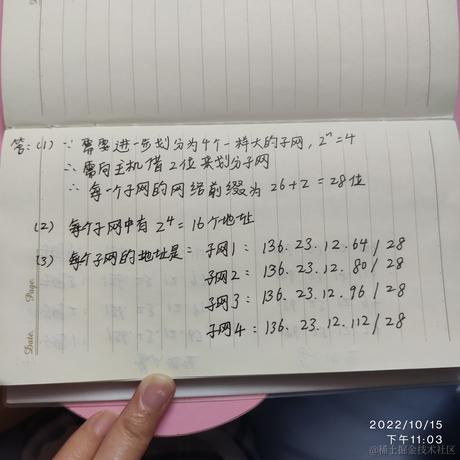 答:(1) ∵ 需要进一步划分为4个一样大的子网, 2ⁿ=4
∴ 需向主机借2位来划分子网
∴ 每一个子网的网络前缀为 26+2=28位
(2) 每个子网中有 2⁴=16个地址
(3) 每个子网的地址是: 子网1: 136.23.12.64/28
子网2: 136.23.12.80/28
子网3: 136.23.12.96/28
子网4: 136.23.12.112/28
Date Page
2022/10/15
下午11:03
@稀土掘金技术社区